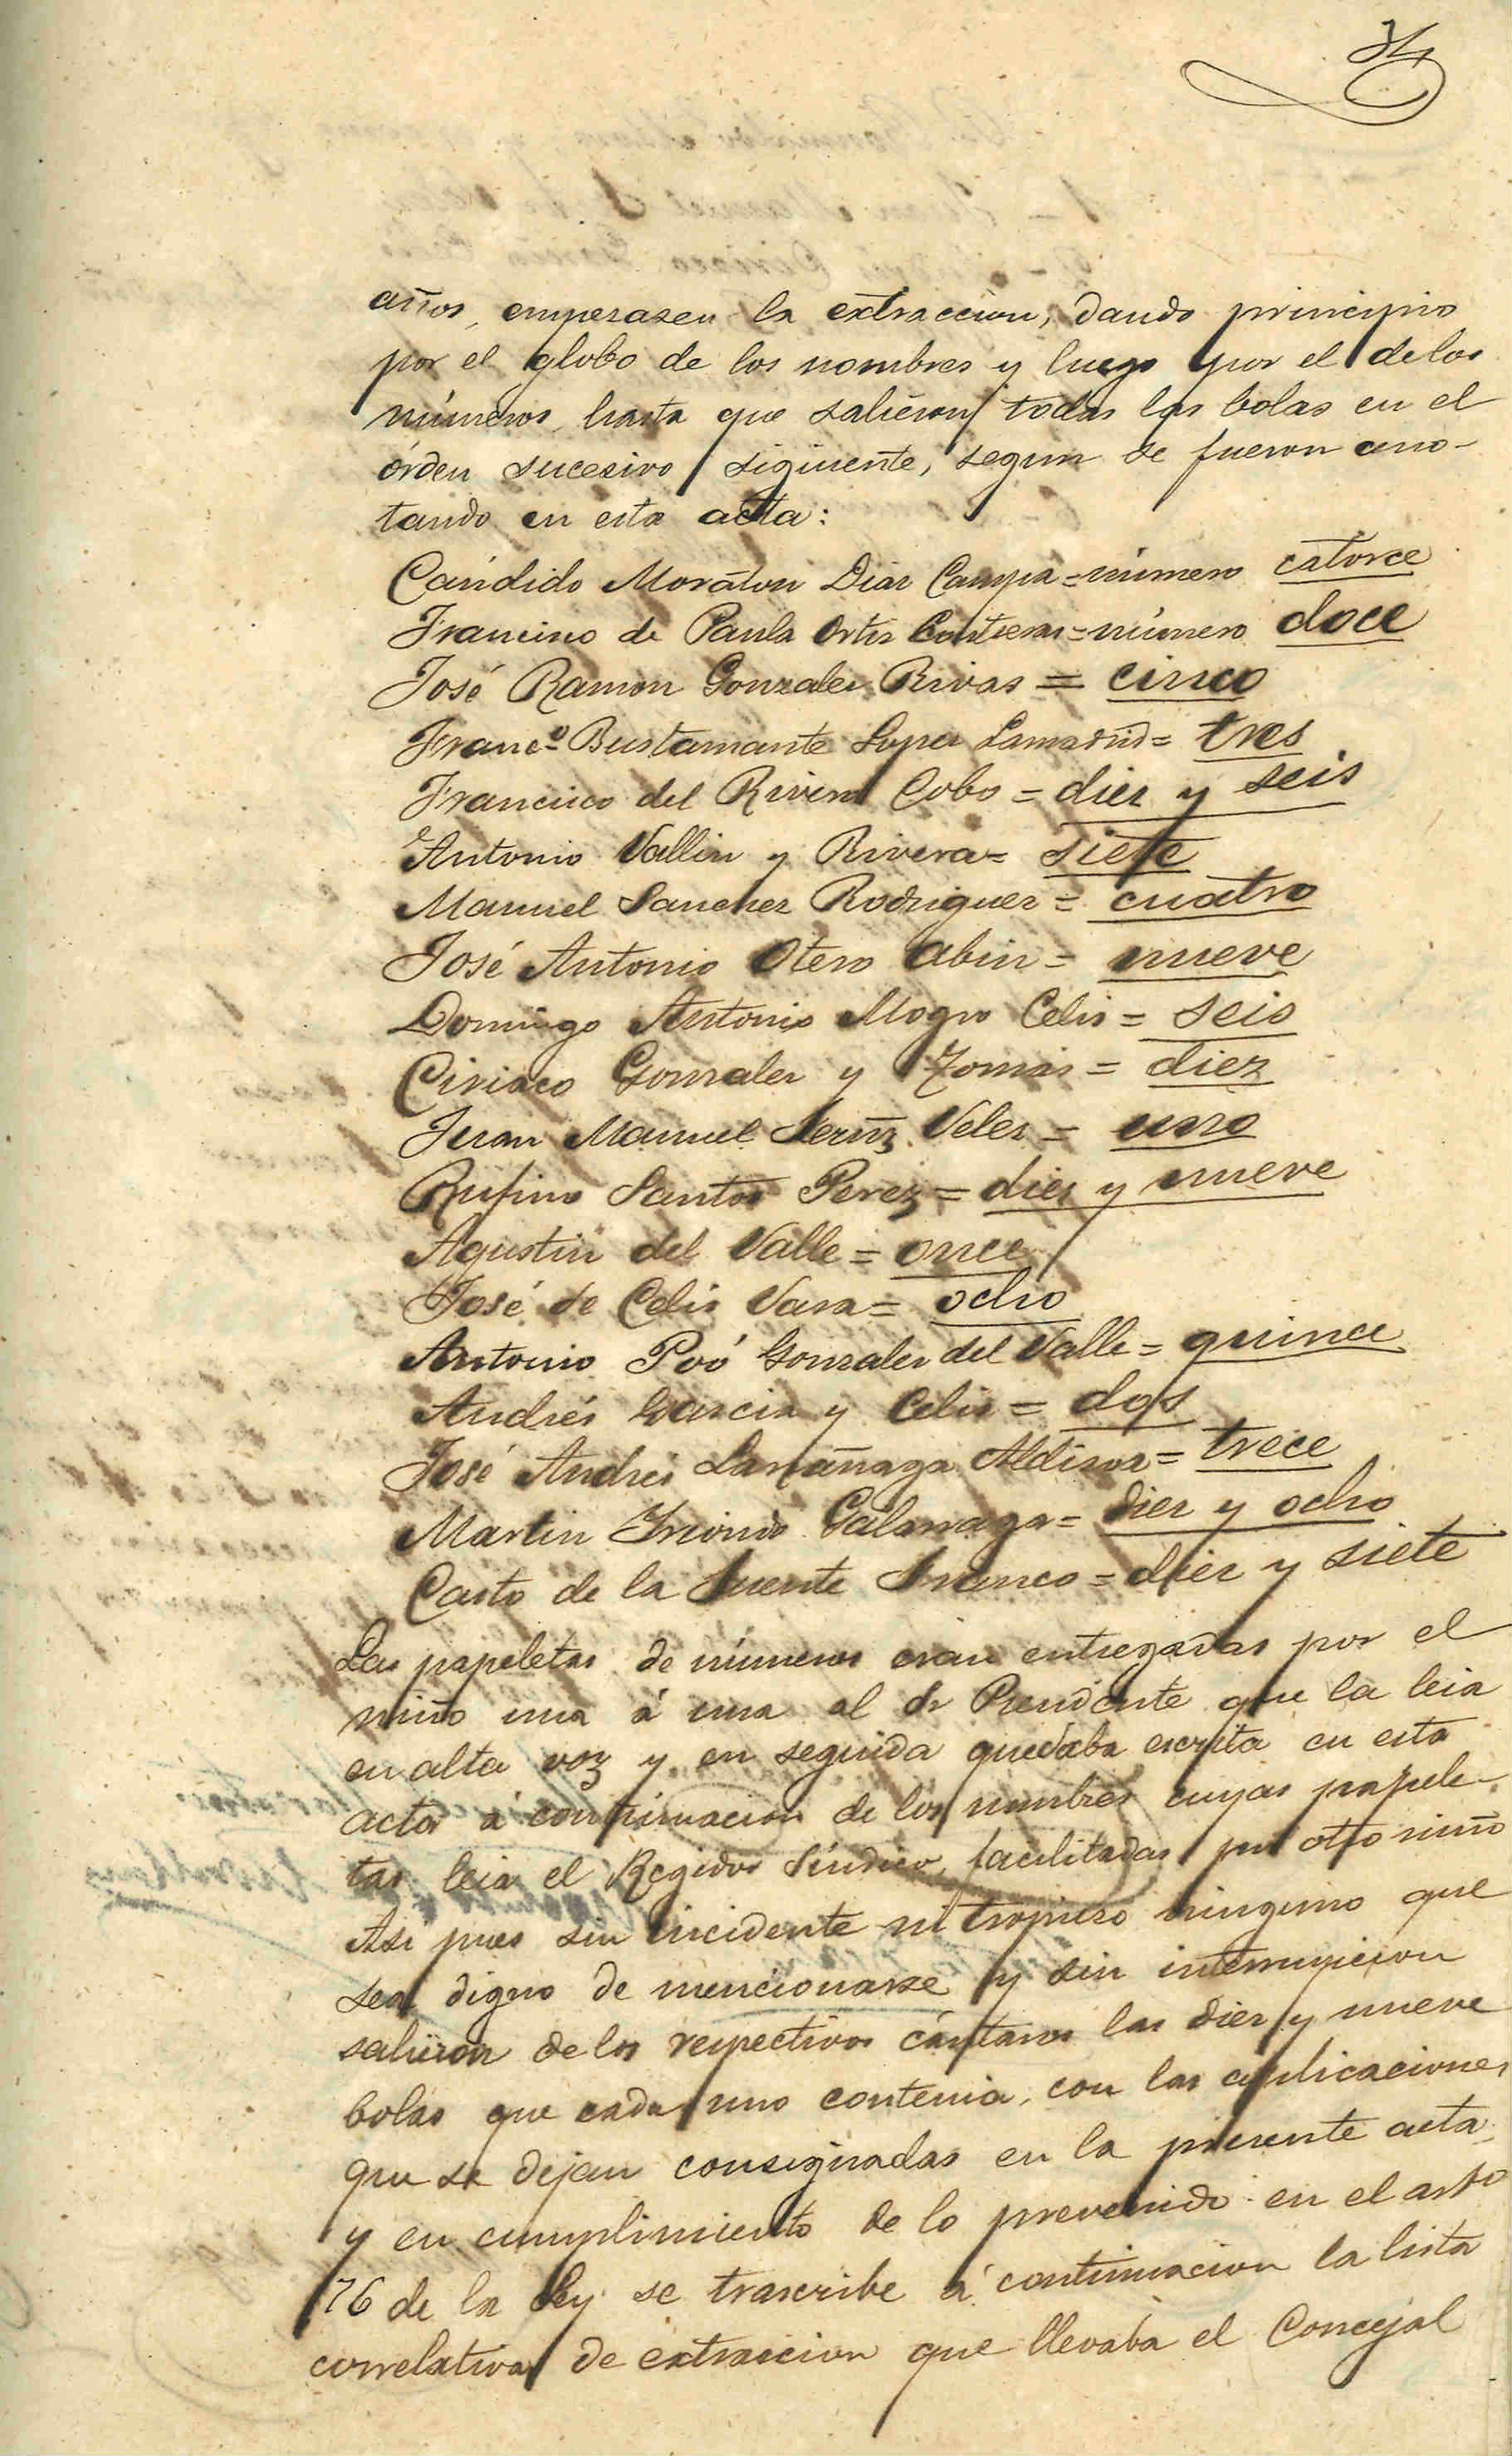 34
años, empezasen la extraccion, dando principio
por el globo de los nombres y luego por el de los
números, hasta que salieron todas las bolas en el
órden sucesivo siguiente, segun se fueron ano-
tando en esta acta:
Cándido Moraton Diaz Campa = número catorce
Francisco de Paula Ortiz Contreras = número doce
José Ramon Gonzalez Rivas = cinco
Franc.º Bustamante Lopez Lamadrid = tres
Francisco del Rivero Cobo = diez y seis
Antonio Vallin y Rivera = siete
Manuel Sanchez Rodriguez = cuatro
José Antonio Otero Abin = nueve
Domingo Antonio Mogro Celis = seis
Ciriaco Gonzalez y Tomás = diez
Juan Manuel Fernz. Velez = uno
Rufino Santos Perez = diez y nueve
Agustin del Valle = once
José de Celis Vara = ocho
Antonio Poó Gonzalez del Valle = quince
Andrés Garcia y Celis = dos
José Andres Larrañaga = trece
Martin Iriondo Galarraga = diez y ocho
Casto de la Fuente Franco = diez y siete
Las papeletas de números eran entregadas por el
niño una á una al Sr Presidente que la leia
en alta voz y en seguida quedaba escrita en esta
acta á continuacion de los nombres cuyas papele-
tas leia el Regidor Síndico, facilitadas por otro niño
Asi pues sin incidente ni tropiezo ninguno que
sea digno de mencionarse y sin interrupcion
salieron de los respectivos cántaros las diez y nueve
bolas que cada uno contenia, con las aplicaciones
que se dejan consignadas en la presente acta,
y en cumplimiento de lo prevenido en el artº
76 de la Ley se trascribe á continuacion la lista
correlativa de extraccion que llevaba el Concejal